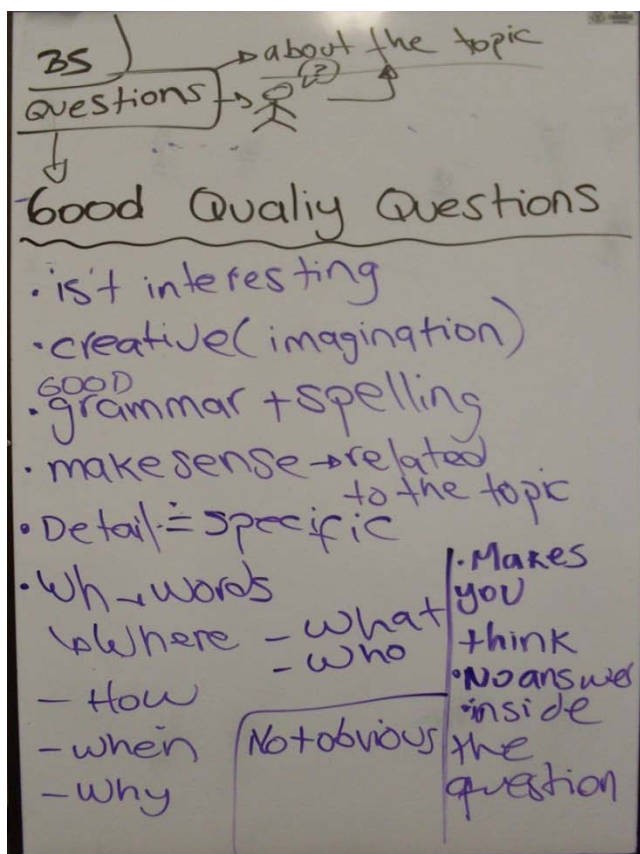 35
about the topic
?
Questions
Good Qualiy Questions
• is't interesting
• creative (imagination)
GOOD
• grammar + spelling
• make sense → related
to the topic
• Detail = specific
• Wh → words
↳ Where - what
- who
- How
- when
- Why
Not obvious
• Makes
you
think
• No answer
• inside
the
question